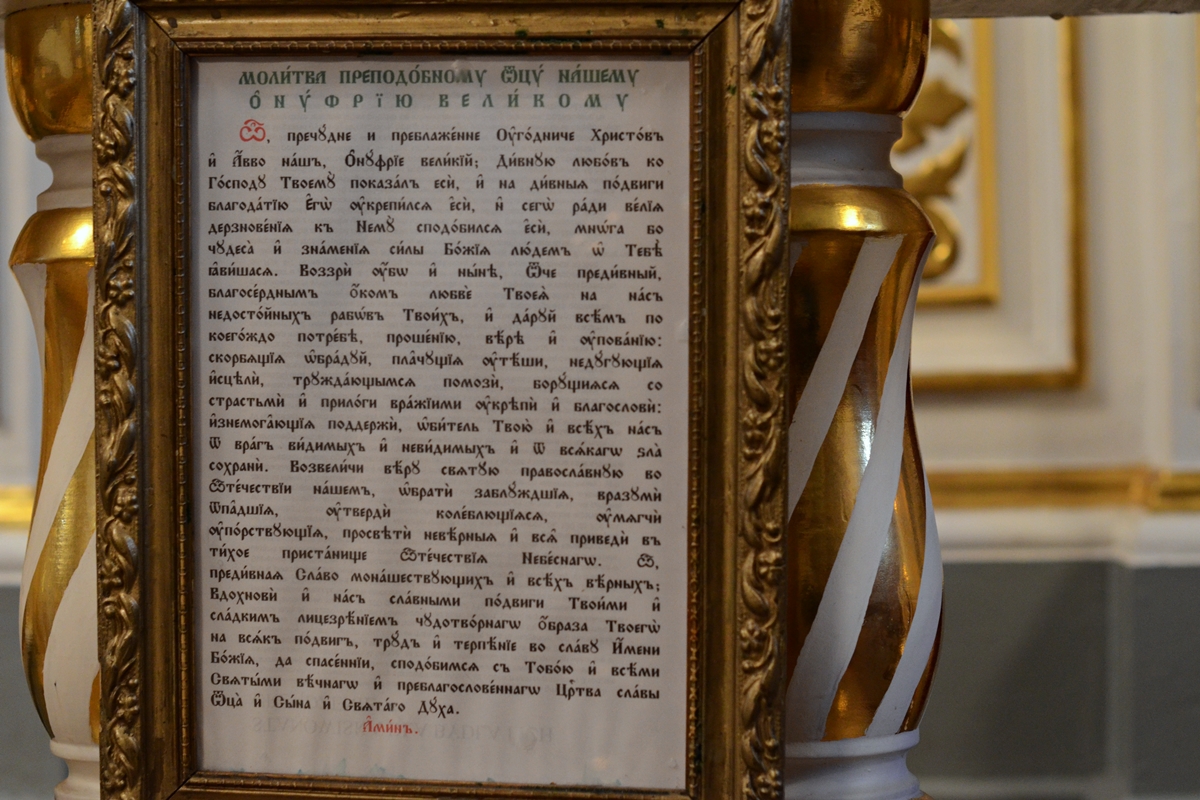 МОЛИ́ТВА ПРЕПОДО́БНОМУ Ѿ҆ЦУ́ НА́ШЕМУ
Ѻ҆НУ́ФРЇЮ ВЕЛИ́КОМУ
Ѽ, пречꙋ́дне и преблаже́нне Оу҆го́дниче Христо́въ
и҆ А҆́вво на́шъ, Ѻ҆нꙋ́фрїе вели́кїй; Ди́внꙋю любо́въ ко
Го́сподꙋ Твоемꙋ̀ показа́лъ еси̇, и҆ на ди́вныя по́двиги
благода́тїю Е҆гѡ̀ оу҆крепи́лся є҆сѝ, и҆ сегѡ̀ ра́ди ве́лїѧ
дерзнове́нїѧ къ Немꙋ̀ сподо́билсѧ є҆сѝ, мнѡ́га бо
чꙋдеса̀ и҆ зна́менїѧ си́лы Бо́жїѧ лю́демъ ѿ Тебѣ̀
ꙗ҆ви́шасѧ. Воззрѝ оу҆́бѡ и҆ ны́нѣ, Ѿ́че преди́вный,
благосе́рднымъ ѻ҆́комъ любвѐ Твоеѧ̀ на на́съ
недосто́йныхъ рабѡ́въ Твои́хъ, и҆ да́рꙋй всѣ̑мъ по
коего́ждо потре́бѣ, проше́нїю, вѣ́рѣ и҆ оу҆пова́нїю:
скорбѧщїѧ ѡ҆бра́дꙋй, пла́чꙋщїѧ оу҆тѣ́ши, недꙋ́гꙋющїѧ
и҆сцѣлѝ, трꙋжда́ющымсѧ помозѝ, борꙋ́щїѧсѧ со
страстьмѝ и҆ прило́ги вра́жїими оу҆крѣпѝ и҆ благословѝ:
и҆знемога́ющїѧ поддержѝ, ѡ҆би́тель Твою̀ и҆ всѣ́хъ на́съ
ѿ вра̑гъ ви́димыхъ и҆ неви́димыхъ и҆ ѿ всѧ́кагѡ ѕла̀
сохранѝ. Возвели́чи вѣ́рꙋ свѧтꙋ́ю правосла́внꙋю во
Ѻ҆те́чествїи на́шем, ѡ҆братѝ заблꙋ́ждшїѧ, вразꙋмѝ
ѿпа́дшїѧ, оу҆твердѝ коле́блющїѧсѧ, оу҆мѧгчѝ
оу҆по́рствꙋющїѧ, просвѣтѝ невѣ́рныѧ и҆ всѧ̑ приведѝ въ
ти́хое приста́нище Ѻ҆те́чествїѧ Небе́снагѡ. Ѽ,
преди́внаѧ Сла́во мона́шествꙋющихъ и҆ всѣ́хъ вѣ́рныхъ;
Вдохновѝ и҆ на́съ сла́вными по́двиги Твои́ми и҆
сла́дкимъ лицезрѣ́нїемъ чꙋдотво́рнагѡ ѻ҆́браза Твоегѡ̀
на всѧ́къ по́двигъ, трꙋ́дъ и҆ терпѣ́нїе во сла́вꙋ И҆́мени
Бо́жїѧ, да спасе́ннїи, сподо́бимсѧ съ Тобо́ю и҆ всѣ́ми
Свѧты́ми вѣ́чнагѡ и҆ преблагослове́ннагѡ Цр҇тва сла́вы
Ѿ҆ца̀ и҆ Сы́на и҆ Свѧта́го Дꙋ́ха.
А҆ми́нъ.